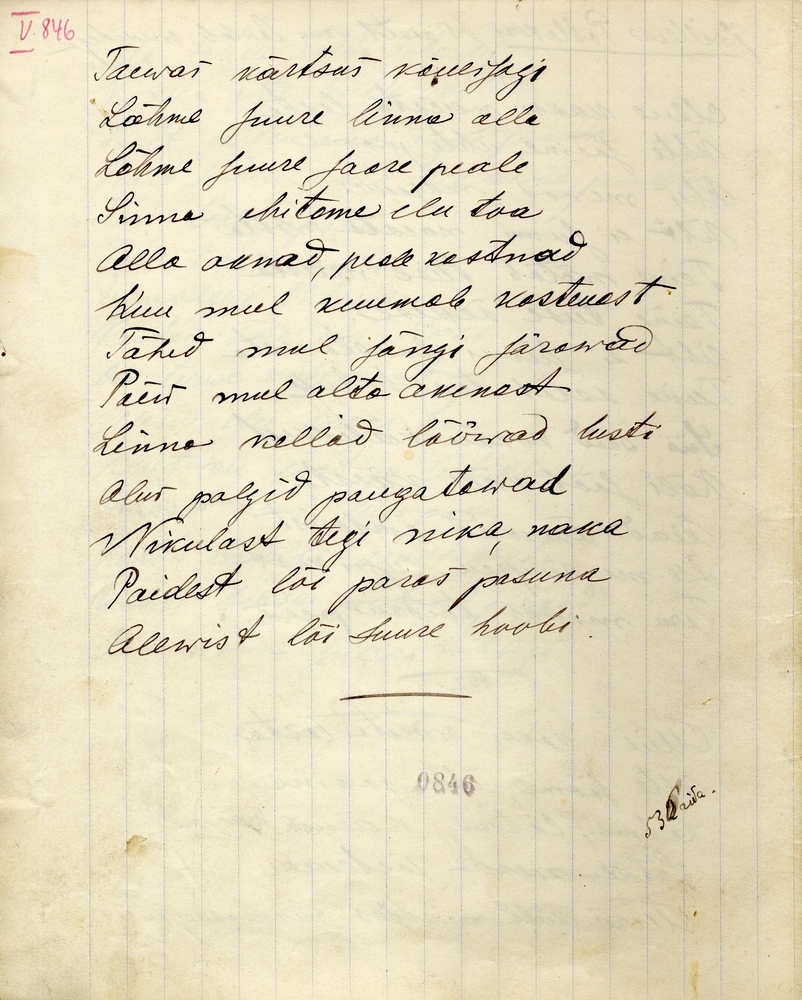 V. 846
Taewas kärtsus kõuejagi
Lähme suure linna alla
Lähme suure saare peale
Sinna ehitame elu toa
Alla aknad, peale kostnad
Kuu mul kuumab kostenast
Tähed mul sängi särawad
Päew mul alta akenast
Linna kellad lööwad lusti
Alut palgid paugatawad
Nikulast tegi nika, naka
Paidest lõi paras pasuna
Alewist lõi suure hoobi.
0846
532